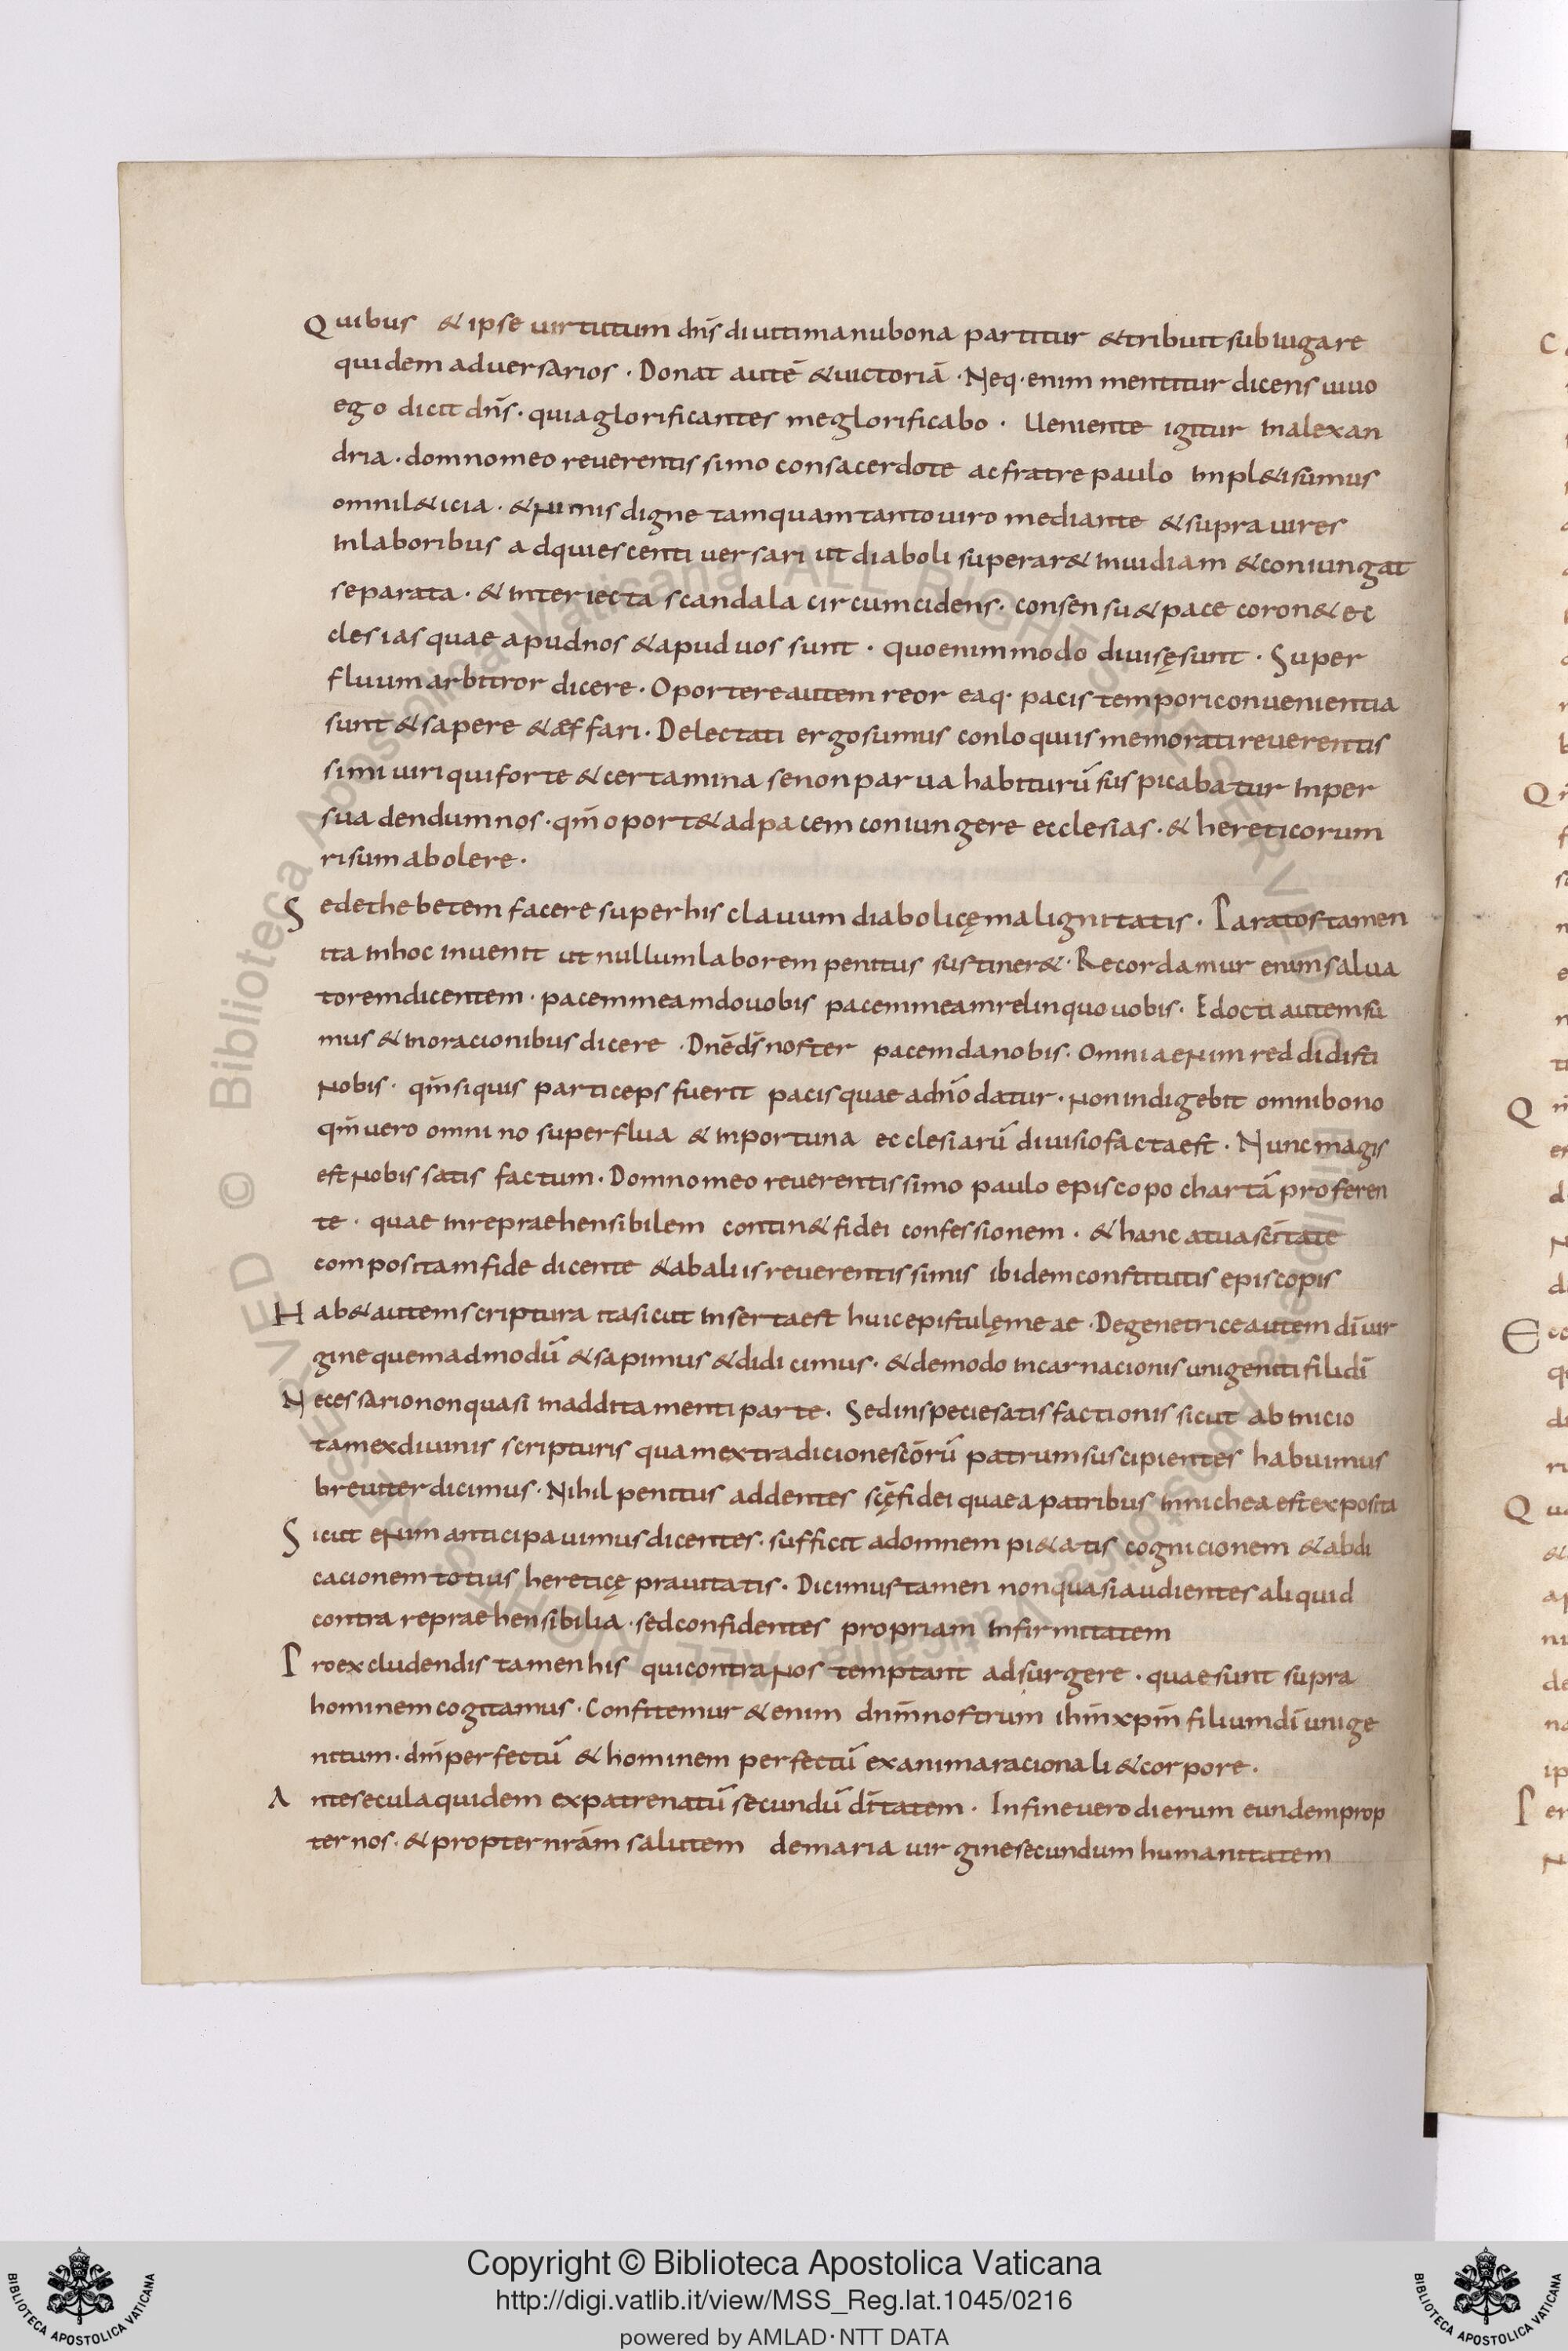 Quibus & ipse uirtutum dn̄s diuitimanubona partitur &tribuit subiugare
quidem aduersarios · Donat autē &uictoriā · Neq· enim mentitur dicens uiuo
ego dicit dn̄s · quia glorificantes me glorificabo · Ueniente igitur inalexan
dria · domno meo reuerentissimo consacerdote ac fratre paulo impl&i sumus
omni l&icia · &nimis digne tamquam tanto uiro mediante & supra uires
in laboribus adquiescenti uersari ut diaboli superar& inuidiam & coniungat
separata · & interiecta scandala circumcidens · consensu & pace coron& ec
clesias quae apud nos & apud uos sunt · quo enim modo diuisę sunt · Super
fluum arbitror dicere · Oportere autem reor eaq· pacis tempori conuenientia
sunt & sapere & æffari · Delectati ergo sumus conloquiis memorati reuerentis
simi uiri qui forte & certamina se non parua habiturū suspicabatur inper
suadendum nos · qm̄ oport& ad pacem coniungere ecclesias · & hereticorum
risum abolere ·
Sed et hebetem facere super his clauum diabolicę malignitatis · Paratos tamen
ita in hoc inuenit ut nullum laborem penitus sustiner& · Recordamur enim salua
torem dicentem · pacem meam do uobis pacem meam relinquo uobis · Edocti autem su
mus & in oracionibus dicere · Dn̄e ds̄ noster pacem da nobis · Omnia enim reddidisti
nobis · qm̄ si quis particeps fuerit pacis quae a dn̄o datur · non indigebit omni bono
qm̄ uero omnino superflua & inportuna ecclesiarū diuisio facta est · Nunc magis
est nobis satis factum · Domno meo reuerentissimo paulo episcopo chartā proferen
te · quae inrepraehensibilem contin& fidei confessionem · & hanc a tua sc̄itate
compositam fide dicente & ab aliis reuerentissimis ibidem constitutis episcopis
Hab& autem scriptura ita sicut inserta est huic epistulę meae · De genetrice autem dī uir
gine quemadmodū & sapimus & didicimus · & de modo incarnacionis unigeniti filii dī
Necessario non quasi in additamenti parte · Sed in specie satisfactionis sicut ab inicio
tam ex diuinis scripturis quam ex tradicione scōrū patrum suscipientes habuimus
breuiter dicimus · Nihil penitus addentes scę̄ fidei quae a patribus in nichea est exposita
Sicut enim anticipauimus dicentes · sufficit ad omnem pi&atis cognicionem & abdi
cacionem totius hereticę prauitatis · Dicimus tamen non quasi audientes aliquid
contra repraehensibilia · sed confidentes propriam infirmitatem
Pro excludendis tamen his qui contra nos temptant adsurgere · quae sunt supra
hominem cogitamus · Confitemur &enim dn̄m nostrum ihm̄ xpm̄ filium dī unige
nitum · dm̄ perfectū & hominem perfectū ex anima racionali & corpore ·
Ante secula quidem ex patre natū secundū dītatem · In fine uero dierum eundem prop
ter nos · & propter nrām salutem de maria uirgine secundum humanitatem
Copyright © Biblioteca Apostolica Vaticana
http://digi.vatlib.it/view/MSS_Reg.lat.1045/0216
powered by AMLAD·NTT DATA